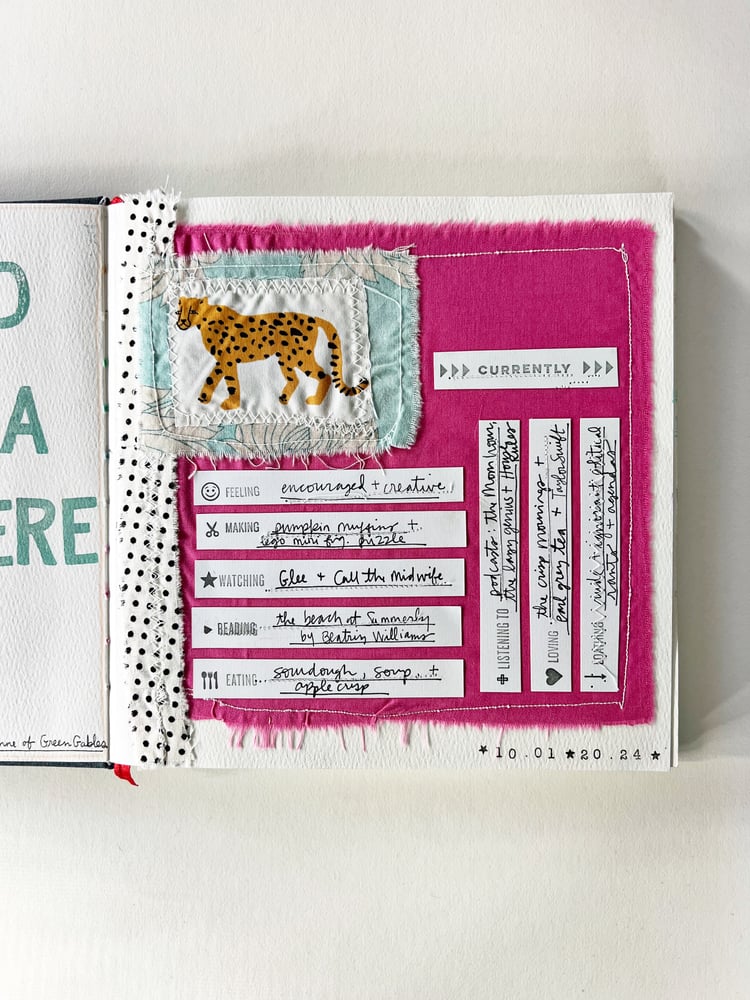 D
A
ERE
nne of Green Gables
CURRENTLY
FEELING encouraged + creative
MAKING pumpkin muffins +
lego mini fig. puzzle
WATCHING Glee + Call the Midwife
READING the beach at Summerly
by Beatriz Williams
EATING sourdough, soup +
apple crisp
LISTENING TO podcasts: the Mom hour,
the lazy genius + Hough
Rules
LOVING the crisp mornings +
earl grey tea + Taylor Swift
LOATHING rude + ignorant political
rants + agendas
10.01 20.24